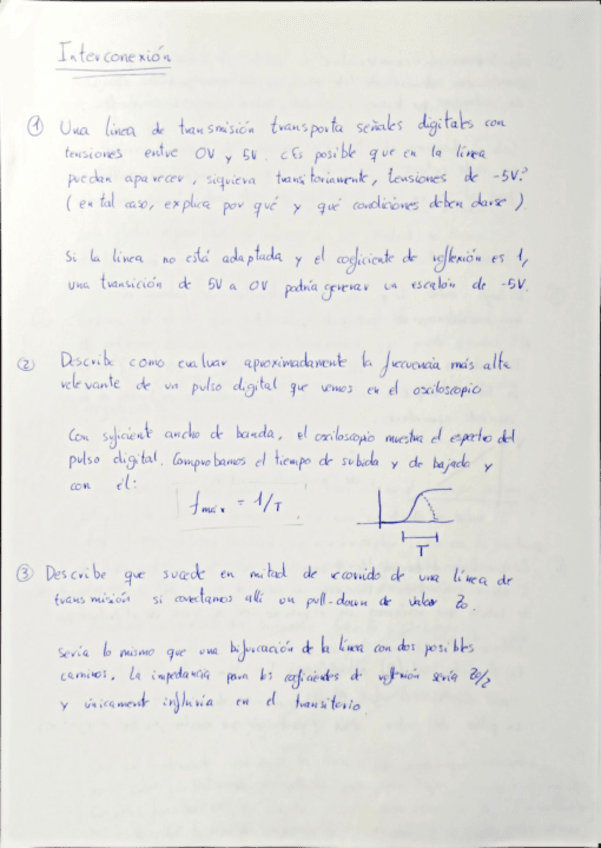 Interconexión
① Una línea de transmisión transporta señales digitales con
tensiones entre 0V y 5V. ¿Es posible que en la línea
puedan aparecer, siquiera transitoriamente, tensiones de -5V?
(en tal caso, explica por qué y qué condiciones deben darse).
Si la línea no está adaptada y el coeficiente de reflexión es 1,
una transición de 5V a 0V podría generar un escalón de -5V.
② Describe como evaluar aproximadamente la frecuencia más alta
relevante de un pulso digital que vemos en el osciloscopio
Con suficiente ancho de banda, el osciloscopio muestra el espectro del
pulso digital. Comprobamos el tiempo de subida y de bajada y
con él:
fmáx = 1/T
T
③ Describe que sucede en mitad de recorrido de una línea de
transmisión si conectamos allí un pull-down de valor Zo.
Sería lo mismo que una bifurcación de la línea con dos posibles
caminos. La impedancia para los coeficientes de reflexión sería Zo/2
y únicamente influiría en el transitorio.